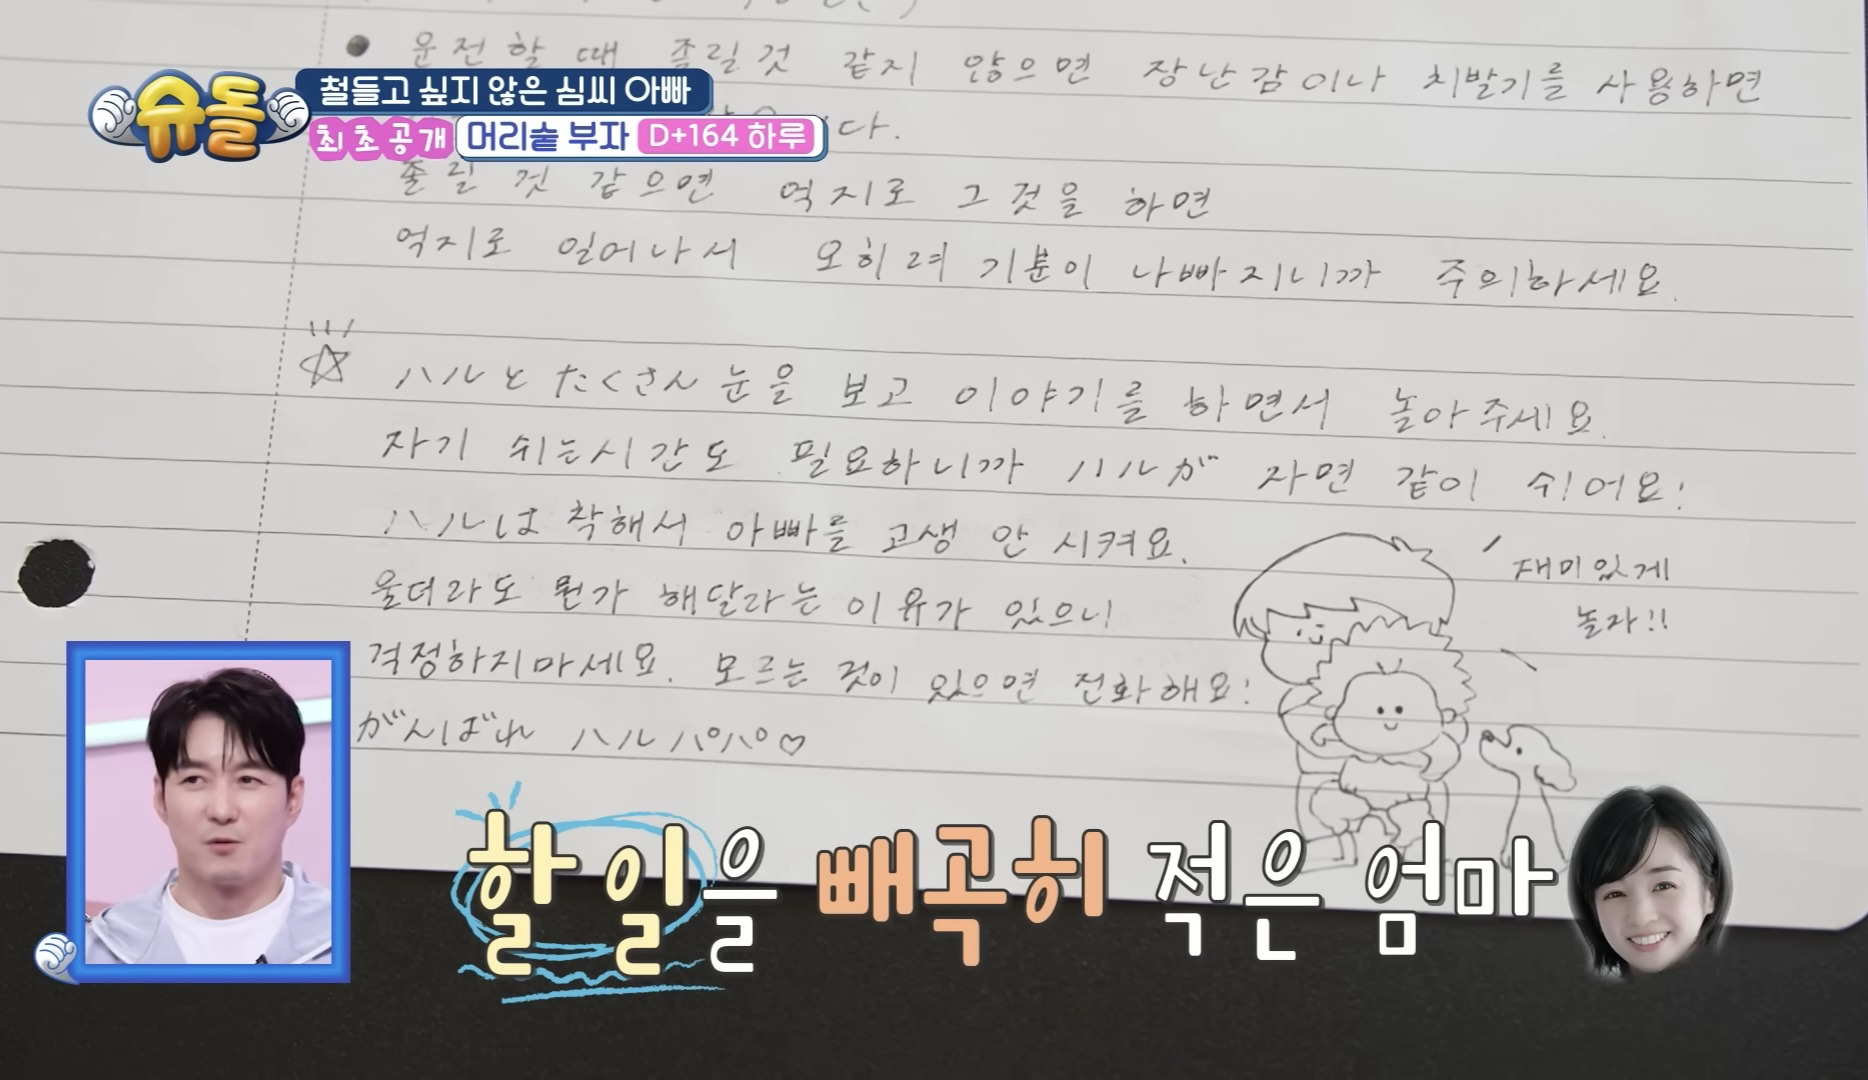 운전할 때 졸릴것 같지 않으면 장난감이나 치발기를 사용하면
슈돌
철들고 싶지 않은 심씨 아빠
최초공개 머리숱 부자 D+164 하루
니다.
졸릴 것 같으면 억지로 그것을 하면
억지로 일어나서 오히려 기분이 나빠지니까 주의하세요.
ハルと たくさん 눈을 보고 이야기를 하면서 놀아주세요.
자기 쉬는시간도 필요하니까 ハルが 자면 같이 쉬어요!
ハルは 착해서 아빠를 고생 안 시켜요.
울더라도 뭔가 해달라는 이유가 있으니
걱정하지마세요. 모르는 것이 있으면 전화해요!
がんばれ ハルパパ♡
재미있게
놀자!!
할 일을 빼곡히 적은 엄마